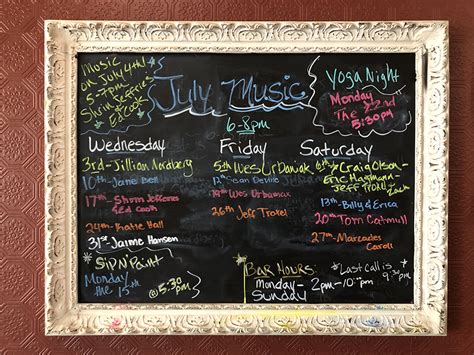 Music
on July 4th!
5-7pm
Shrin Jeffries
Ed Cook
July Music
6-8pm
Yoga Night
Monday
The 22nd
5:30pm
Wednesday
3rd - Jillian Nordberg
10th - Jane Bell
17th - Shrin Jefferies
&Ed Cook
24th - Katie Hall
31st Jaime Hansen
Friday
5th Wes Urbaniak
12th - Ian Devine
19th Wes Urbamax
26th Jeff Troxel
Saturday
6th - Craig Olson -
Eric
Jeff Troxel -
Zach
13th - Billy & Erica
20th Tom Catmull
27th - Marcades
Caroll
Sip N Paint
Monday
the 15th
@5:30pm
Bar Hours:
Monday -
Sunday
2pm - 10pm
*Last call is
9:30pm*